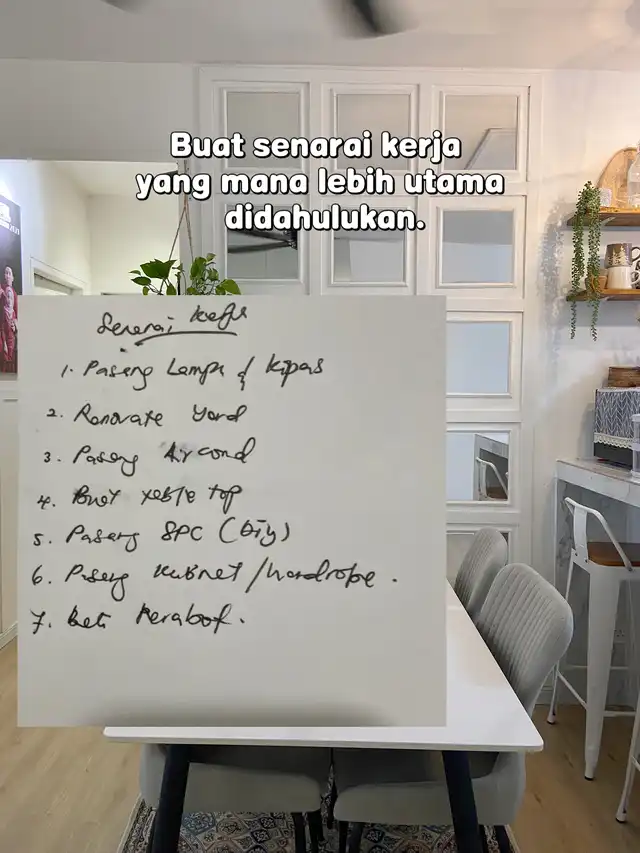 Buat senarai kerja
yang mana lebih utama
didahulukan.
Senarai kerja
1. Pasang Lampu & kipas
2. Renovate yard
3. Pasang Aircond
4. Buat table top
5. Pasang SPC (Diy)
6. Pasang kabinet / wardrobe.
7. Beli Perabot.